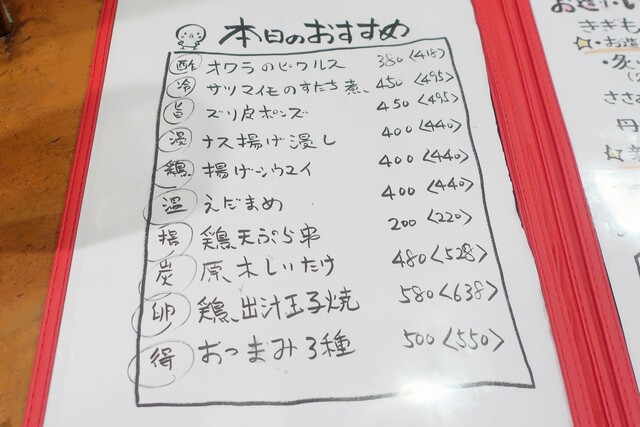 本日のおすすめ
酢 オクラのピクルス 380<418>
冷 サツマイモのすだち煮 450<495>
旨 ズリ皮ポンズ 450<495>
浸 ナス揚げ浸し 400<440>
鶏 揚げシウマイ 400<440>
温 えだまめ 400<440>
揚 鶏天ぷら串 200<220>
炭 原木しいたけ 480<528>
卵 鶏出汁玉子焼 580<638>
得 おつまみ3種 500<550>
きぎも
ささみ